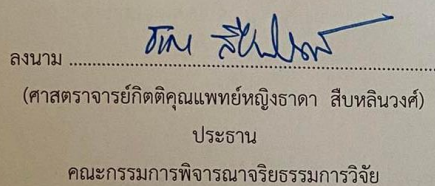 ลงนาม
(ศาสตราจารย์กิตติคุณแพทย์หญิงธาดา สืบหลินวงศ์)
ประธาน
คณะกรรมการพิจารณาจริยธรรมการวิจัย